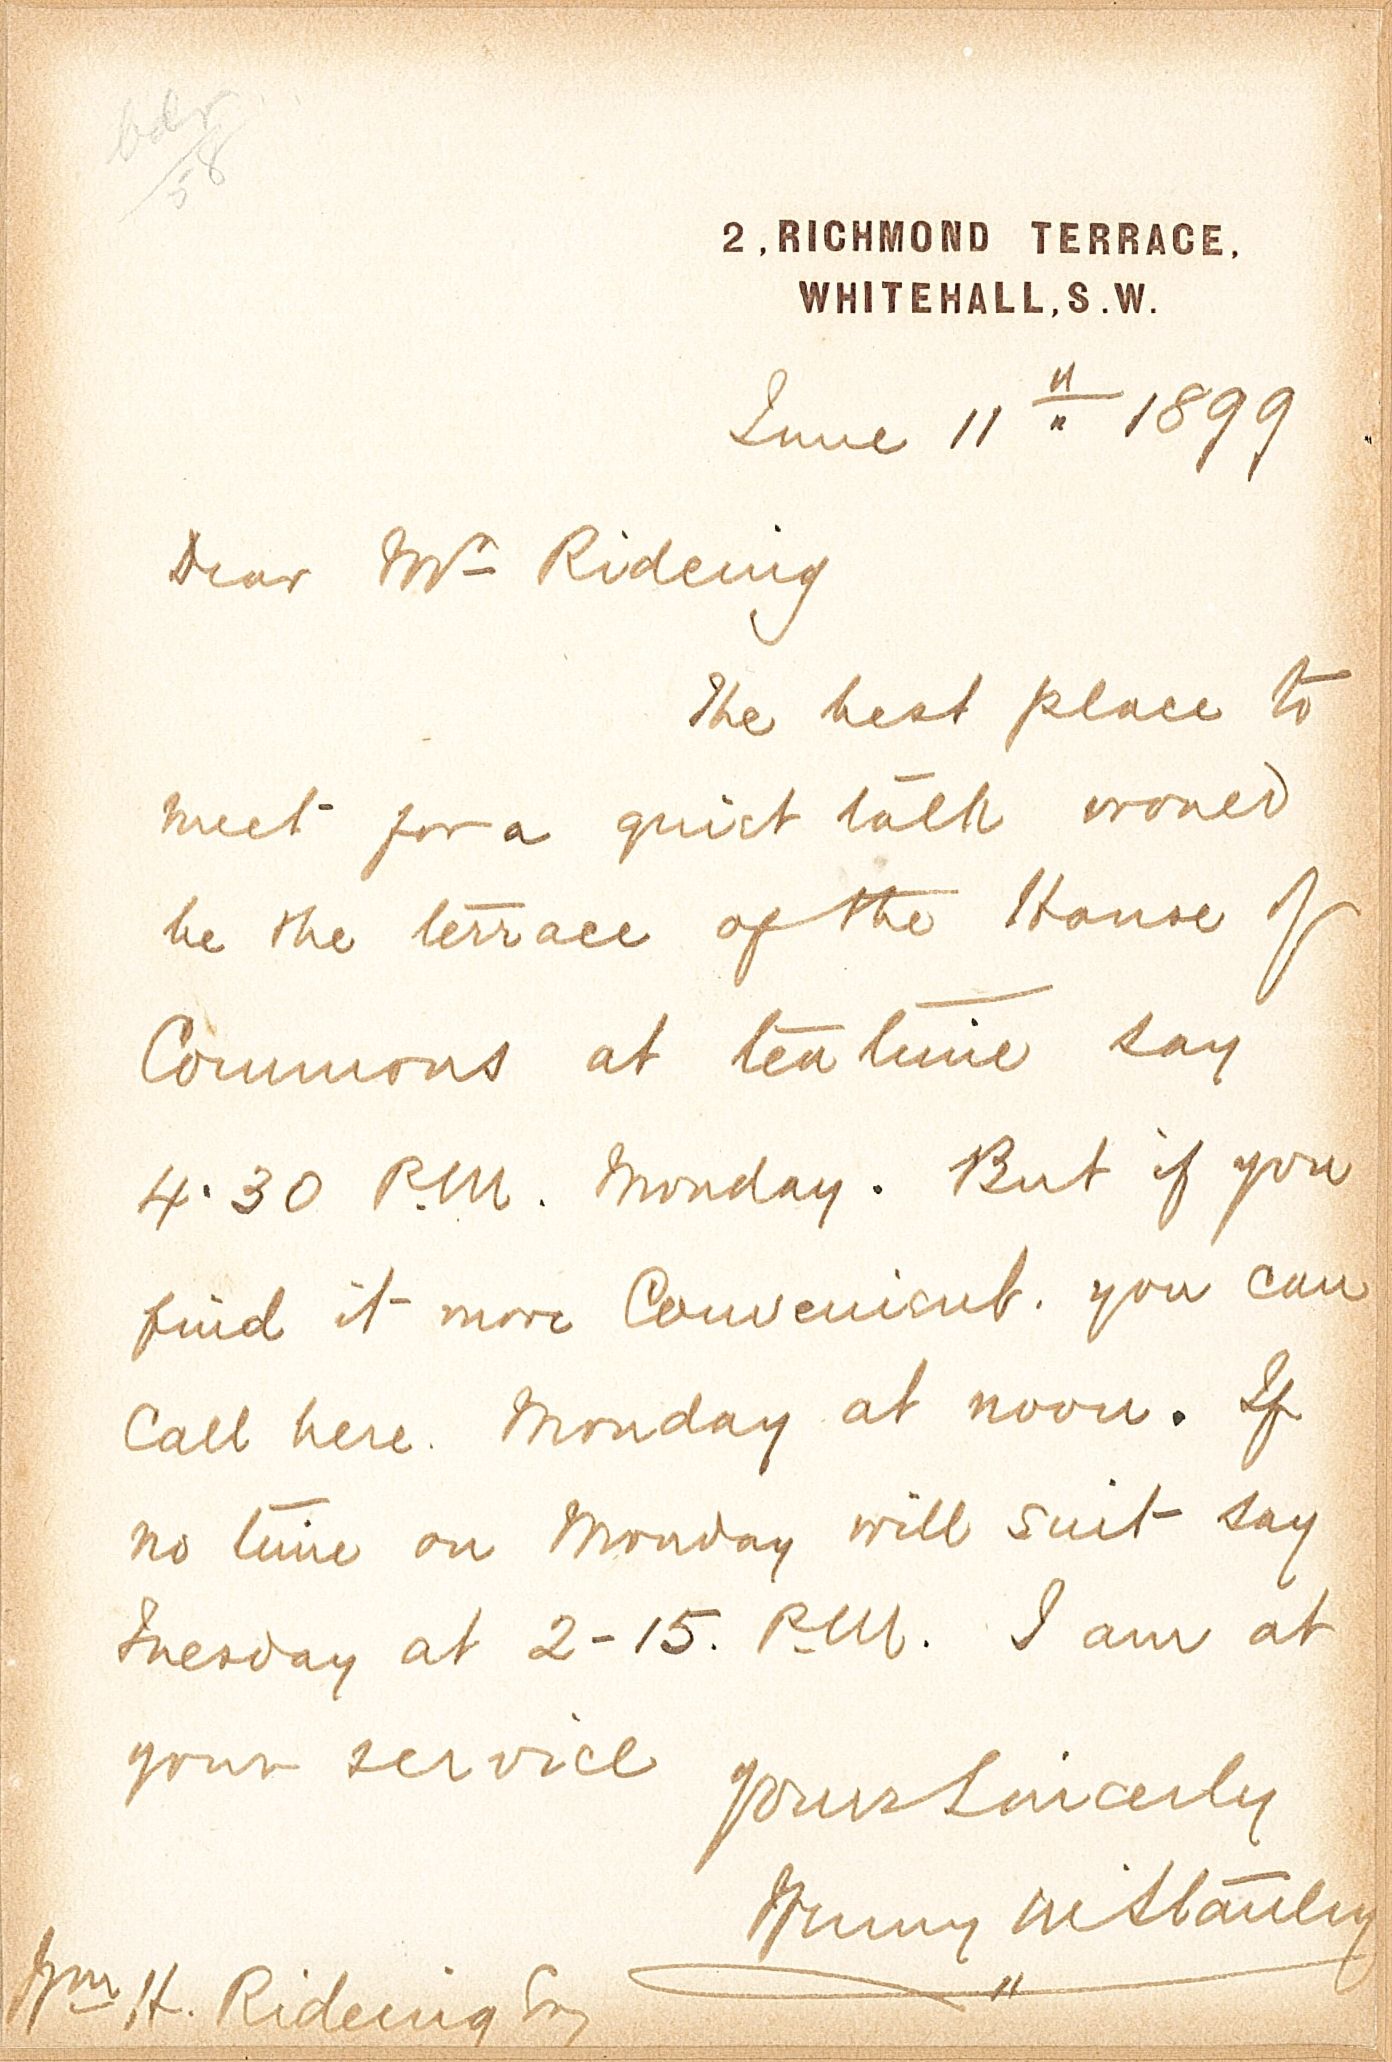 58
2, RICHMOND TERRACE,
WHITEHALL, S.W.
June 11th 1899
Dear Mr Rideing
The best place to
meet for a quiet talk would
be the terrace of the House of
Commons at tea time say
4.30 P.M. Monday. But if you
find it more Convenient. you can
Call here. Monday at noon. If
no time on Monday will suit say
Tuesday at 2-15. P.M. I am at
your service
Yours Sincerely
Henry M Stanley
Wm H. Rideing Esq